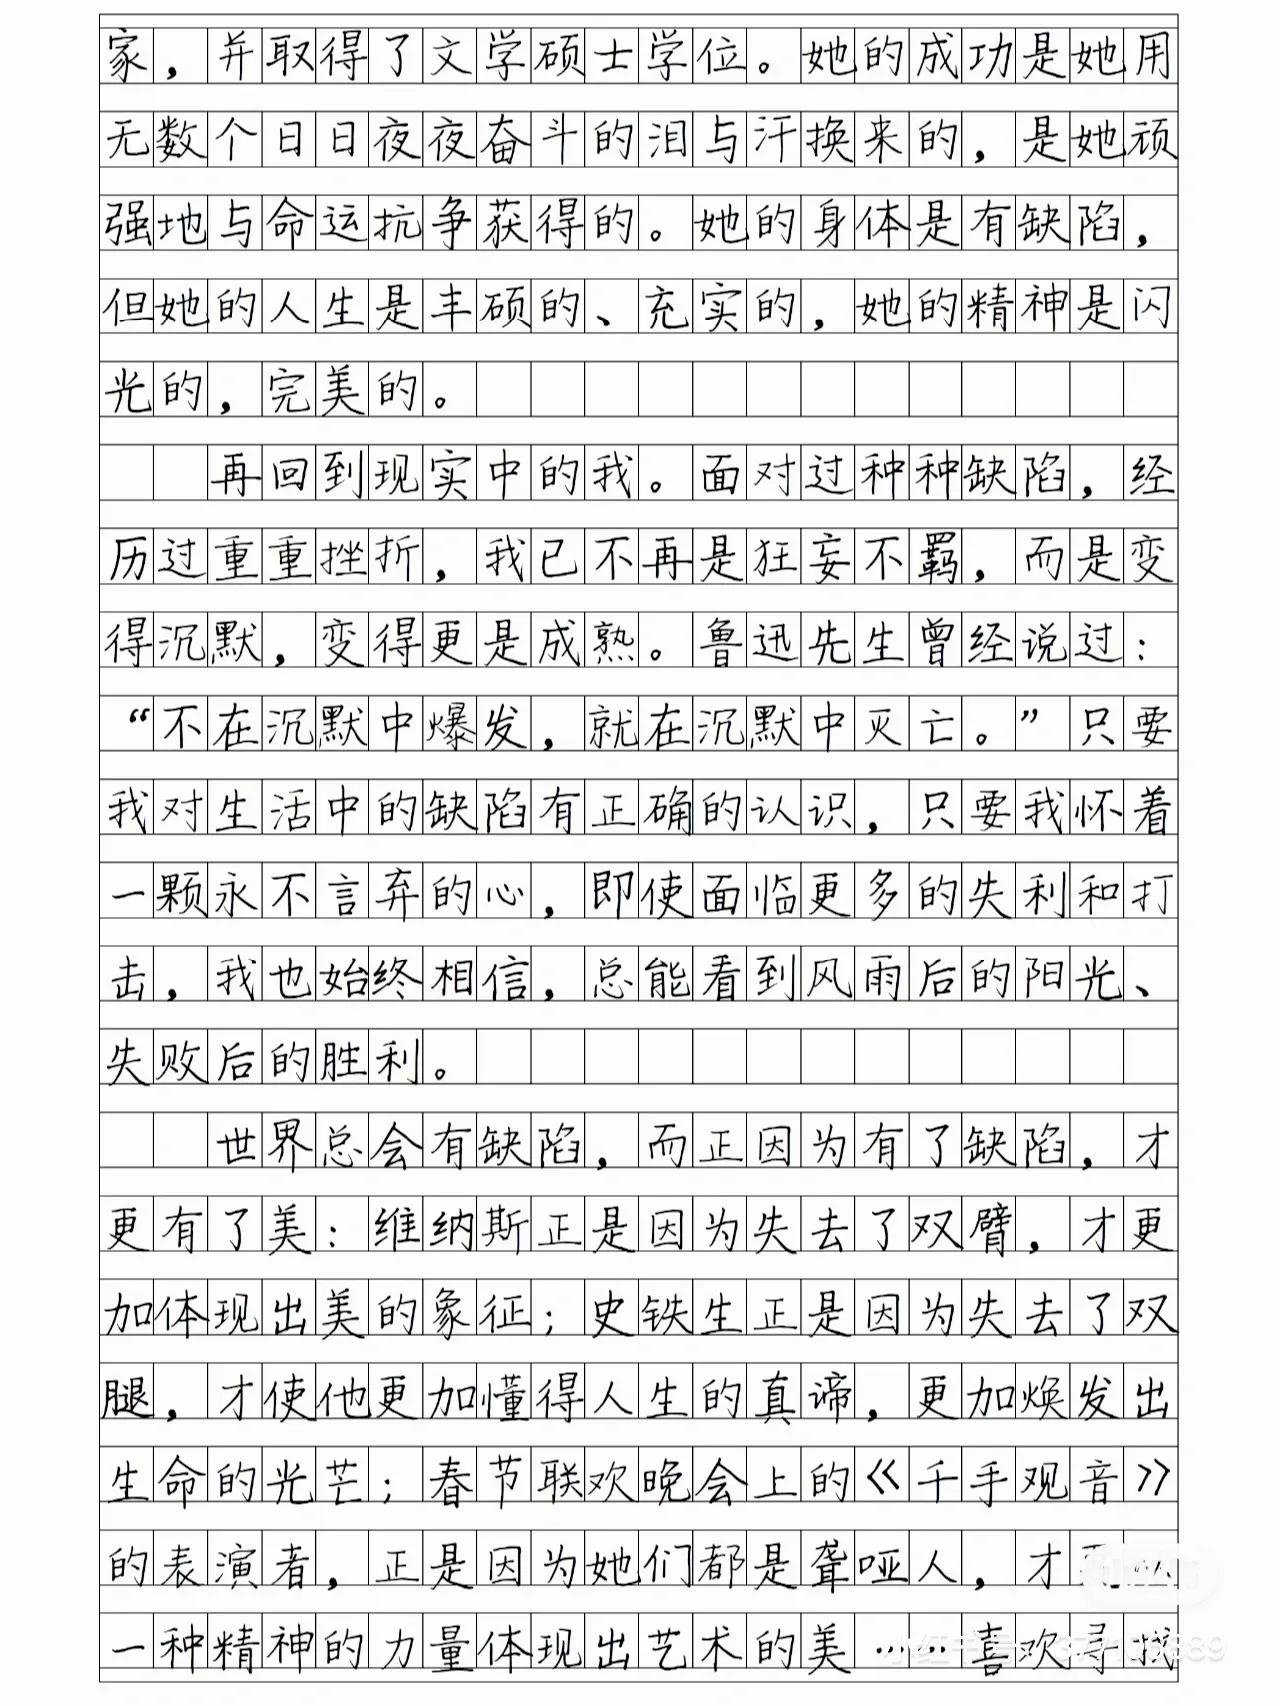 家，并取得了文学硕士学位。她的成功是她用
无数个日日夜夜奋斗的泪与汗换来的，是她顽
强地与命运抗争获得的。她的身体是有缺陷，
但她的人生是丰硕的、充实的，她的精神是闪
光的，完美的。
再回到现实中的我。面对过种种缺陷，经
历过重重挫折，我已不再是狂妄不羁，而是变
得沉默，变得更是成熟。鲁迅先生曾经说过：
“不在沉默中爆发，就在沉默中灭亡。”只要
我对生活中的缺陷有正确的认识，只要我怀着
一颗永不言弃的心，即使面临更多的失利和打
击，我也始终相信，总能看到风雨后的阳光、
失败后的胜利。
世界总会有缺陷，而正因为有了缺陷，才
更有了美：维纳斯正是因为失去了双臂，才更
加体现出美的象征；史铁生正是因为失去了双
腿，才使他更加懂得人生的真谛，更加焕发出
生命的光芒；春节联欢晚会上的《千手观音》
的表演者，正是因为她们都是聋哑人，才
一种精神的力量体现出艺术的美……喜欢寻找
小红书号